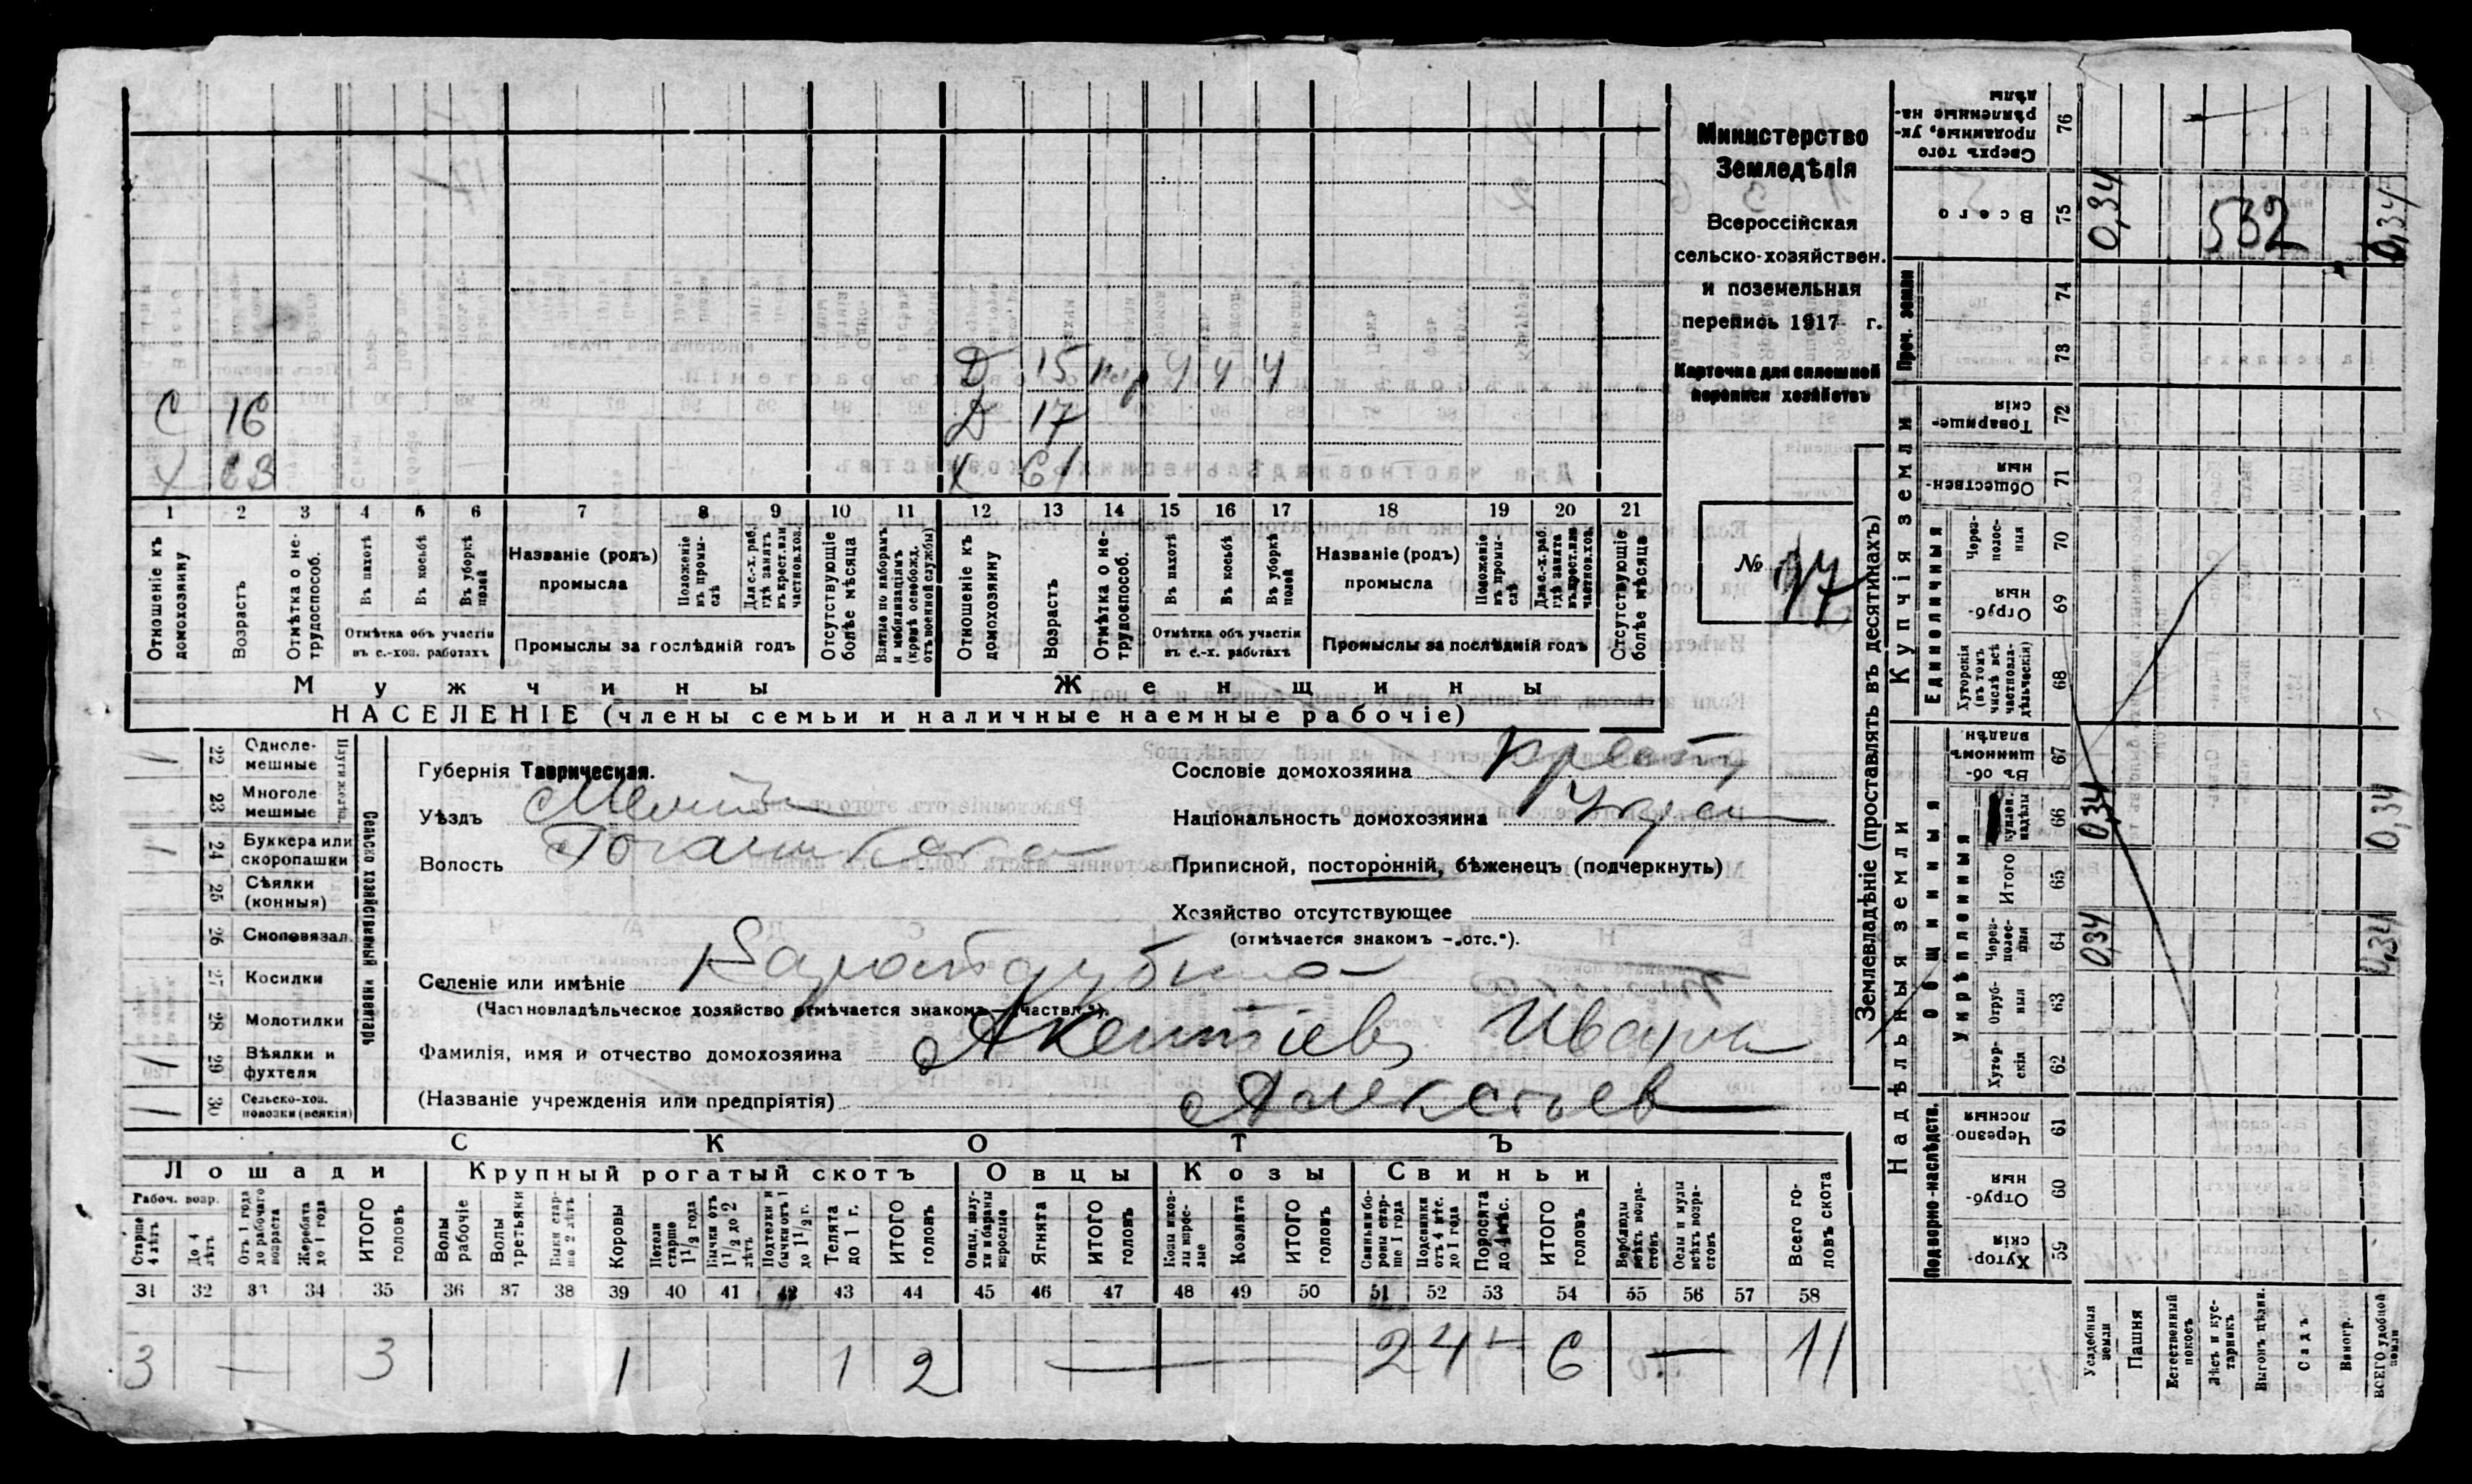 С 16
63
Д 15 4 4 4
Д 17
61
1 2 3 4 5 6 7 8 9 10 11 12 13 14 15 16 17 18 19 20 21
Отношеніе къ домохозяину
Возрастъ
Отмѣтка о не-трудоспособ.
Въ пахотѣ
Въ косьбѣ
Въ уборкѣ полей
Отмѣтка объ участіи въ с.-хоз. работахъ
Названіе (родъ) промысла
Положеніе въ промы-слѣ
Для с.-х. раб. гдѣ занятъ въ крест. или частнов. хоз.
Промыслы за послѣдній годъ
Отсутствующіе болѣе мѣсяца
Взятые по наборамъ и мобилизаціямъ (кромѣ освобожд. отъ военной службы)
Отношеніе къ домохозяину
Возрастъ
Отмѣтка о не-трудоспособ.
Въ пахотѣ
Въ косьбѣ
Въ уборкѣ полей
Отмѣтка объ участіи въ с.-х. работахъ
Названіе (родъ) промысла
Положеніе въ промы-слѣ
Для с.-х. раб. гдѣ занята въ крест. или частнов. хоз.
Промыслы за послѣдній годъ
Отсутствующіе болѣе мѣсяца
Мужчины Женщины
НАСЕЛЕНІЕ (члены семьи и наличные наемные рабочіе)
Министерство
Земледѣлія
Всероссійская
сельско-хозяйствен.
и поземельная
перепись 1917 г.
Карточка для сплошной
переписи хозяйствъ
№ 47
Сельско хозяйственный инвентарь
22 Одноле-мешные 1
23 Многоле мешные
24 Буккера или скоропашки 1
25 Сѣялки (конныя)
26 Сноповязал.
27 Косилки
28 Молотилки
29 Вѣялки и фухтеля 1
30 Сельско-хоз. повозки (всякія) 1
Губернія Таврическая.
Уѣздъ Мелит
Волость
Селеніе или имѣніе
(Частновладѣльческое хозяйство отмѣчается знакомъ — „частвл.").
Фамилія, имя и отчество домохозяина Акентіев Иван
(Названіе учрежденія или предпріятія) Алексѣев
Сословіе домохозяина крест
Національность домохозяина Укра
Приписной, посторонній, бѣженецъ (подчеркнуть)
Хозяйство отсутствующее
(отмѣчается знакомъ -„отс.").
СКОТЪ
Лошади Крупный рогатый скотъ Овцы Козы Свиньи
Рабоч. возр.
Старше 4 лѣтъ
До 4 лѣтъ
Отъ 1 года до рабочаго возраста
Жеребята до 1 года
ИТОГО головъ
Волы рабочіе
Волы третьяки
Быки стар-ше 2 лѣтъ
Коровы
Нетели старше 1 1/2 года
Бычки отъ 1 1/2 до 2 лѣтъ
Подтелки и бычки отъ 1 до 1 1/2 г.
Телята до 1 г.
ИТОГО головъ
Овцы, валу-хи и бараны взрослые
Ягнята
ИТОГО головъ
Козы и коз-лы взрос-лые
Козлята
ИТОГО головъ
Свиньи и бо-ровы стар-ше 1 года
Подсвинки отъ 4 мѣс. до 1 года
Поросята до 4 мѣс.
ИТОГО головъ
Верблюды всѣхъ возра-стовъ
Ослы и мулы всѣхъ возра-стовъ
Всего го-ловъ скота
31 32 33 34 35 36 37 38 39 40 41 42 43 44 45 46 47 48 49 50 51 52 53 54 55 56 57 58
3 — 3 1 1 2 — 2 4 — 6 — 11
Землевладѣніе (проставлять въ десятинахъ)
Надѣльныя земли Купчія земли
Подворно-наслѣдств.
Общинныя
Укрѣпленныя
Единоличныя
Проч. земли
Сверхъ того проданные, ук-рѣпленные на-дѣлы 76
Всего 75 0,34 532 0,34
74
73
Товарище-скія 72
Обществен-ныя 71
Через-полос-ныя 70
Отруб-ныя 69
Хуторскія (въ томъ числѣ всѣ частновла-дѣльческія) 68
Въ об-щинномъ владѣн. 67
куплен. надѣлы 66 0,34 0,34
Итого 65
Через-полос-ныя 64 0,34 0,34
Отруб-ныя 63
Хутор-скія 62
Черезпо-лосныя 61
Отруб-ныя 60
Хутор-скія 59
Усадебныя земли
Пашня
Естественный покосъ
Лѣсъ и кус-тарникъ
Выгонъ цѣлин.
Садъ
Виногр.
ВСЕГО удобной земли